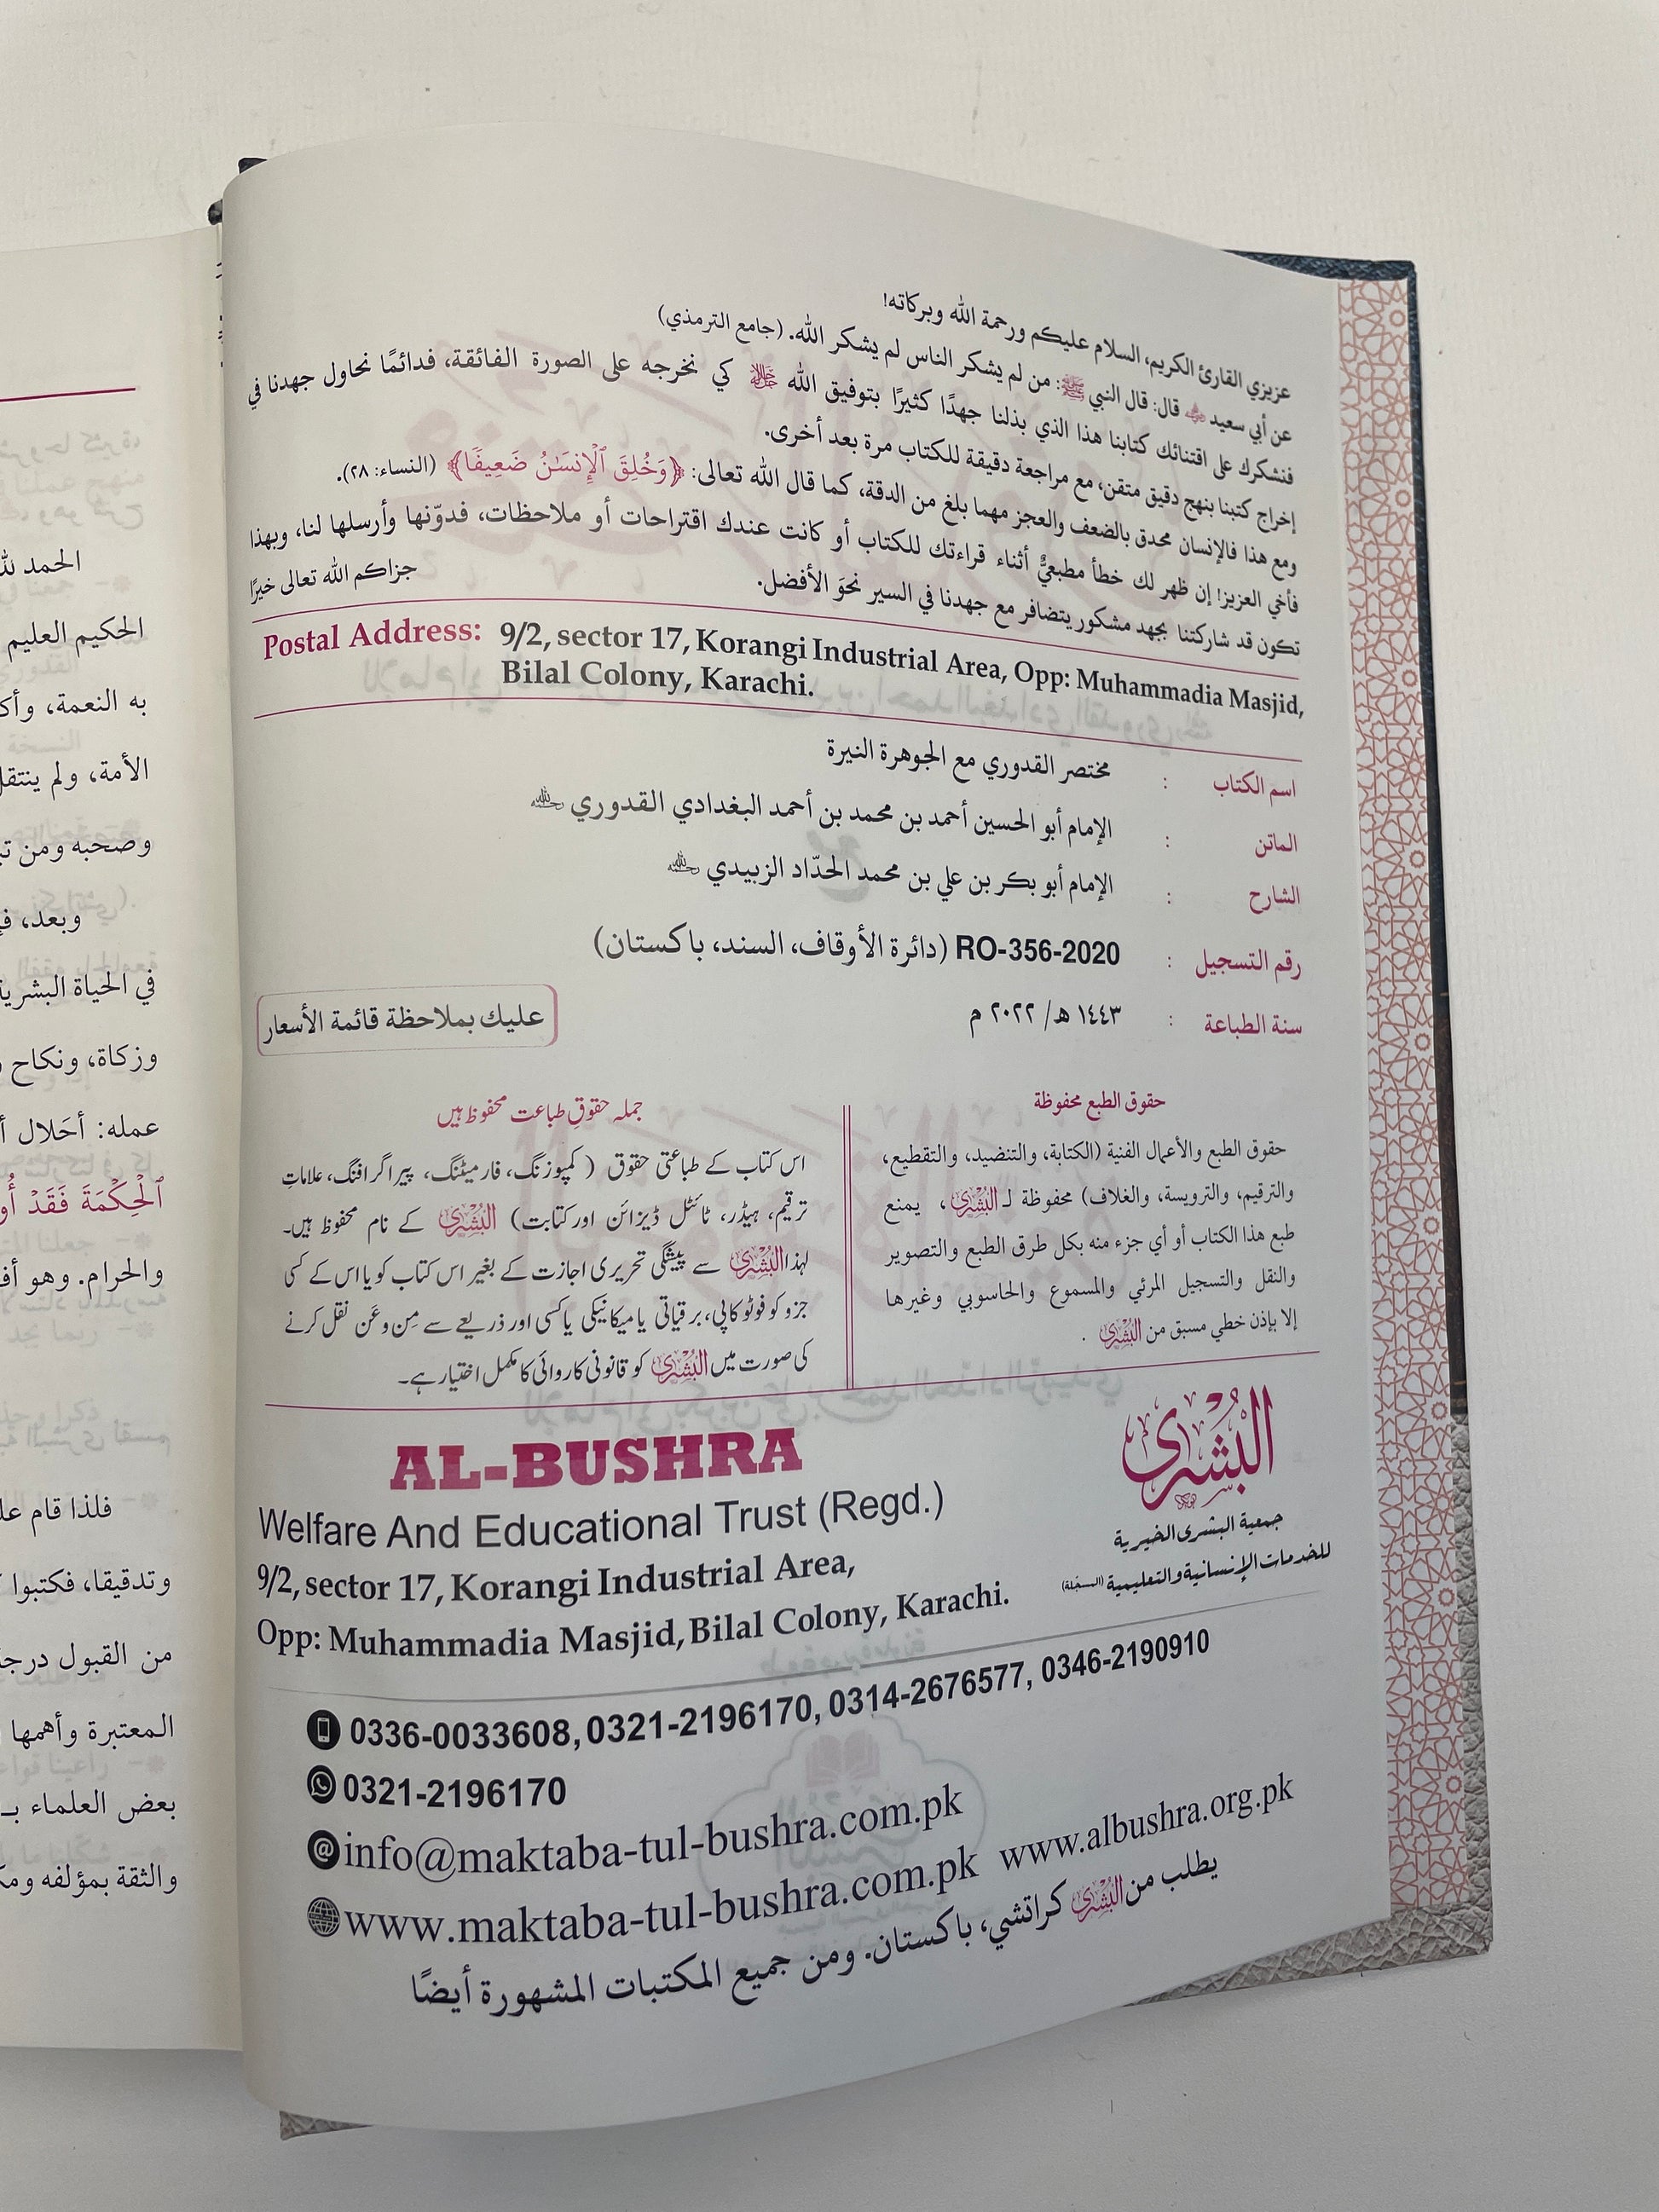 عزيزي القارئ الكريم، السلام عليكم ورحمة الله وبركاته!
عن أبي سعيد ﷺ قال: قال النبي ﷺ: من لم يشكر الناس لم يشكر الله. (جامع الترمذي)
فنشكرك على اقتنائك كتابنا هذا الذي بذلنا جهدًا كثيرًا بتوفيق الله ﷻ كي نخرجه على الصورة الفائقة، فدائمًا نحاول جهدنا في
إخراج كتبنا بنهج دقيق متقن، مع مراجعة دقيقة للكتاب مرة بعد أخرى.
ومع هذا فالإنسان محدق بالضعف والعجز مهما بلغ من الدقة، كما قال الله تعالى: ﴿وَخُلِقَ ٱلْإِنسَـٰنُ ضَعِيفًا﴾ (النساء: ٢٨).
فأخي العزيز! إن ظهر لك خطأ مطبعيٌّ أثناء قراءتك للكتاب أو كانت عندك اقتراحات أو ملاحظات، فدوّنها وأرسلها لنا، وبهذا
تكون قد شاركتنا بجهد مشكور يتضافر مع جهدنا في السير نحوَ الأفضل. جزاكم الله تعالى خيرًا
Postal Address: 9/2, sector 17, Korangi Industrial Area, Opp: Muhammadia Masjid,
Bilal Colony, Karachi.
اسم الكتاب : مختصر القدوري مع الجوهرة النيرة
الماتن : الإمام أبو الحسين أحمد بن محمد بن أحمد البغدادي القدوري رحمه الله
الشارح : الإمام أبو بكر بن علي بن محمد الحدّاد الزبيدي رحمه الله
رقم التسجيل : RO-356-2020 (دائرة الأوقاف، السند، باكستان)
سنة الطباعة : ١٤٤٣ هـ/ ٢٠٢٢ م
عليك بملاحظة قائمة الأسعار
حقوق الطبع محفوظة
حقوق الطبع والأعمال الفنية (الكتابة، والتنضيد، والتقطيع،
والترقيم، والترويسة، والغلاف) محفوظة لـ البُشرى، يمنع
طبع هذا الكتاب أو أي جزء منه بكل طرق الطبع والتصوير
والنقل والتسجيل المرئي والمسموع والحاسوبي وغيرها
إلا بإذن خطي مسبق من البُشرى .
جملہ حقوقِ طباعت محفوظ ہیں
اس کتاب کے طباعتی حقوق ( کمپوزنگ، فارمیٹنگ، پیراگرافنگ، علاماتِ
ترقیم، ہیڈر، ٹائٹل ڈیزائن اور کتابت) البُشرى کے نام محفوظ ہیں۔
لہذا البُشرى سے پیشگی تحریری اجازت کے بغیر اس کتاب کو یا اس کے کسی
جزو کو فوٹو کاپی، برقیاتی یا میکانیکی یا کسی اور ذریعے سے مِن وعَن نقل کرنے
کی صورت میں البُشرى کو قانونی کاروائی کا مکمل اختیار ہے۔
AL-BUSHRA
Welfare And Educational Trust (Regd.)
9/2, sector 17, Korangi Industrial Area,
Opp: Muhammadia Masjid, Bilal Colony, Karachi.
البُشرى
جمعية البشرى الخيرية
للخدمات الإنسانية والتعليمية (المسجّلة)
0336-0033608, 0321-2196170, 0314-2676577, 0346-2190910
0321-2196170
info@maktaba-tul-bushra.com.pk
www.maktaba-tul-bushra.com.pk www.albushra.org.pk
يطلب من البُشرى كراتشي، باكستان. ومن جميع المكتبات المشهورة أيضًا
الحمد
الحكيم العليم
به النعمة،
الأمة، ولم
وصحبه ومن
وبعد،
في الحياة
وزكاة، ونكاح
عمله: أحَلال
ٱلْحِكْمَةَ فَقَدْ
والحرام. وهو
فلذا قام
وتدقيقا، فكتبوا
من القبول
المعتبرة وأهمها
بعض العلماء
والثقة بمؤلفه